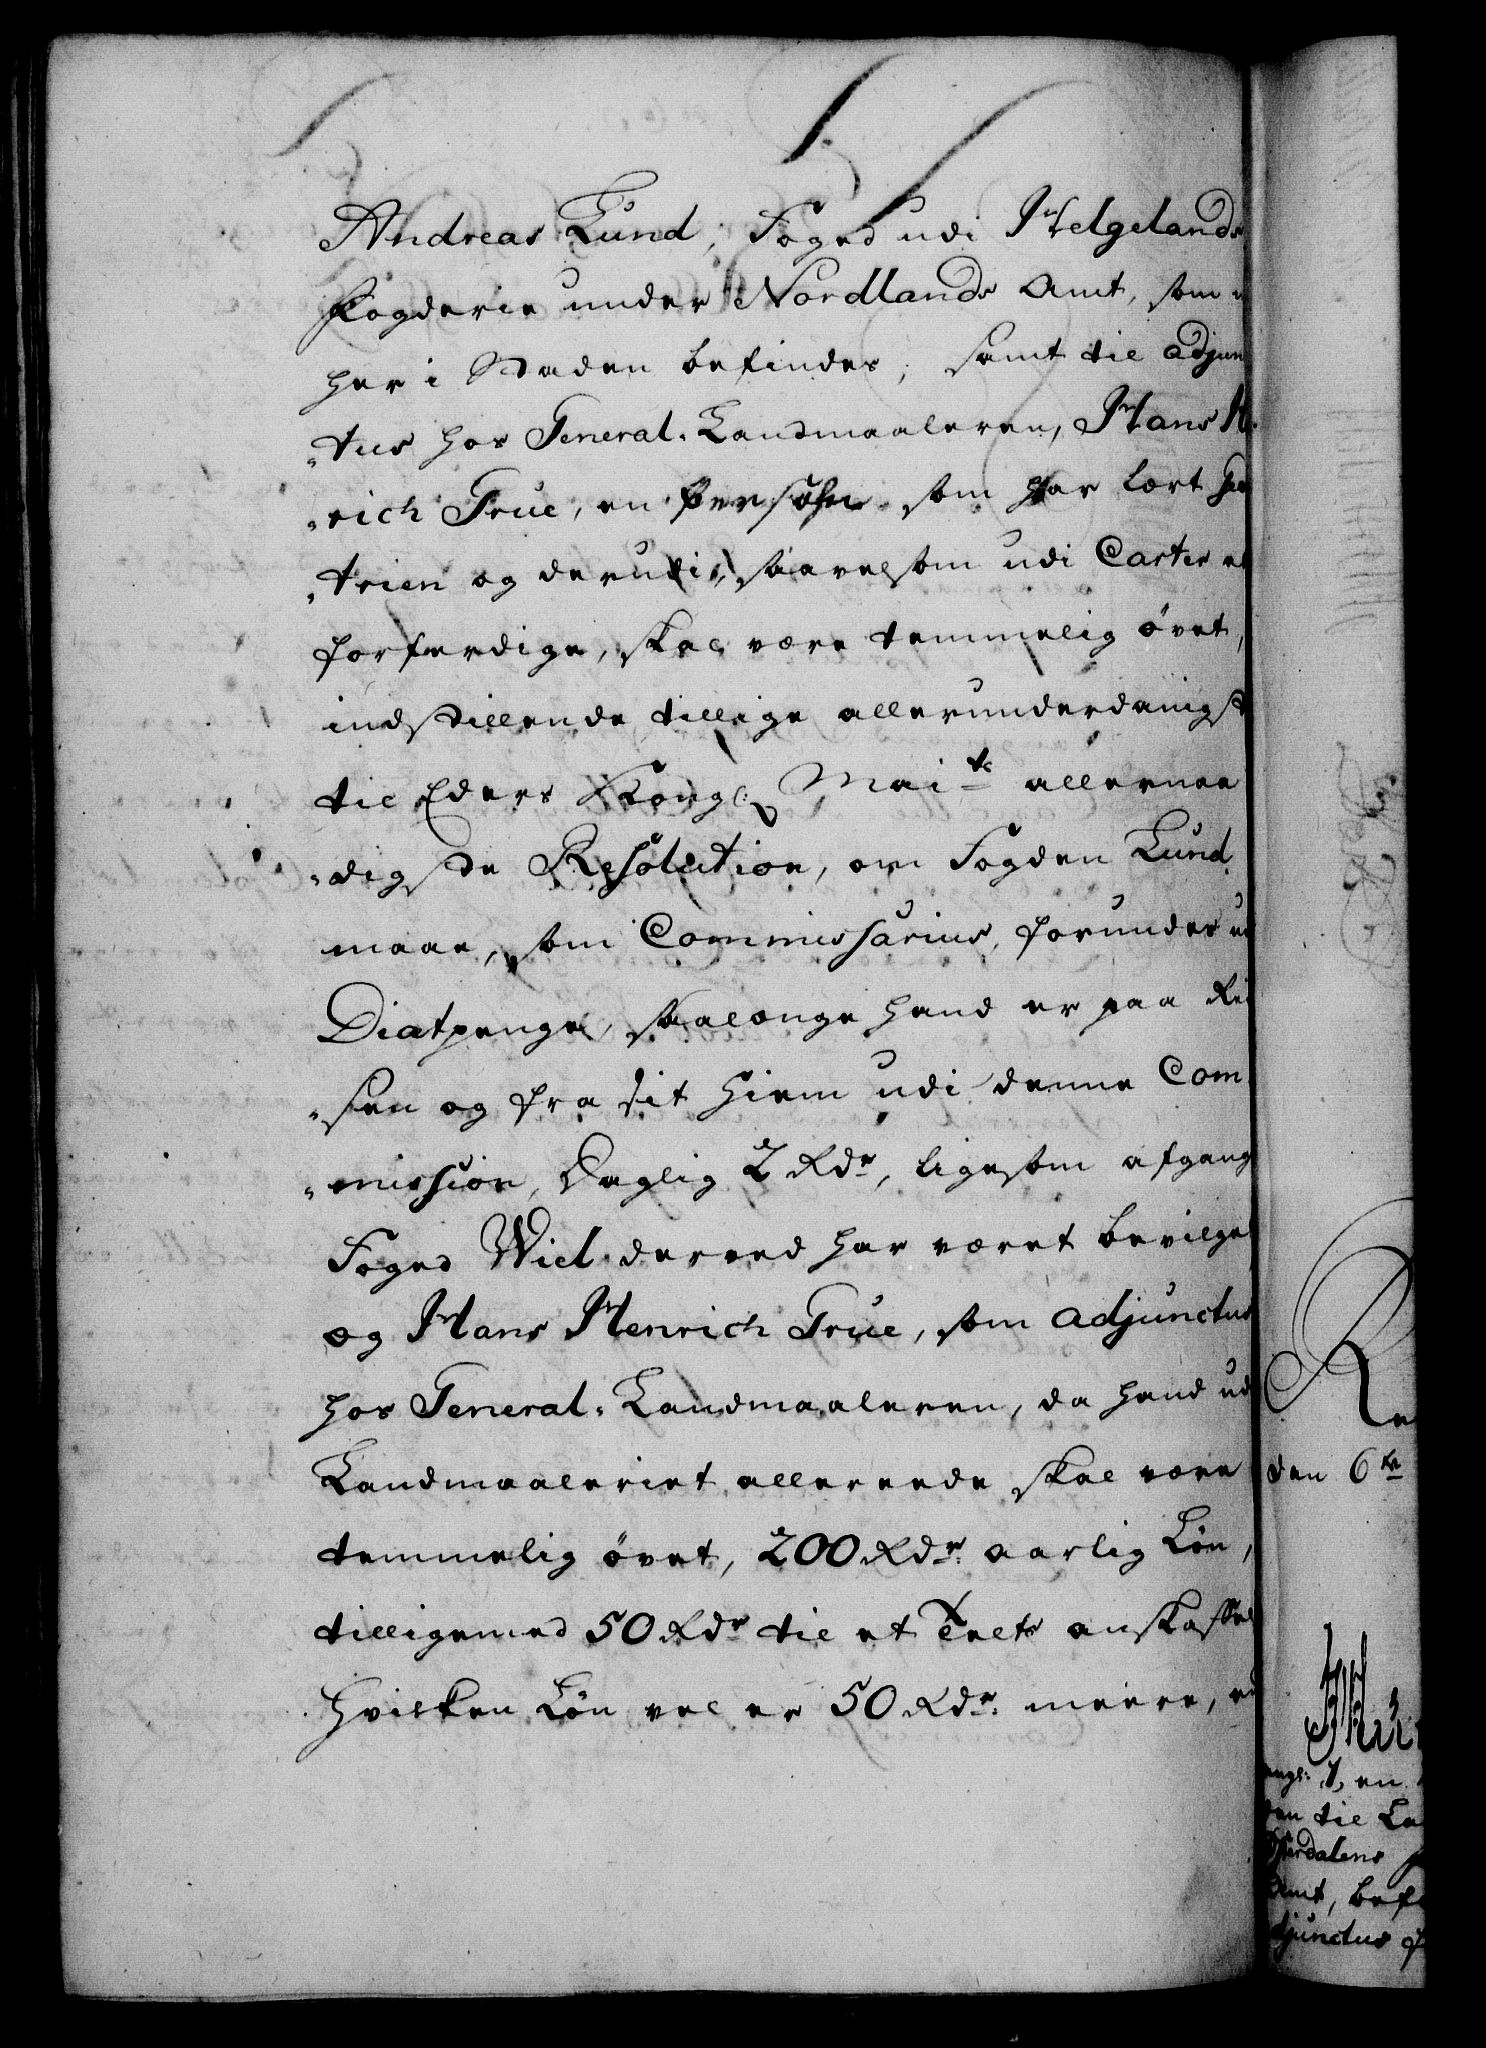 Andreas Lund, Foged udi Helgelands
Fogderie under Nordlands Amt, som
her i Staden befindes, samt til adjun
„tus hos General-Landmaaleren, Hans H
„rich True, en Persohn som har lært
„trien og derudi, saavelsom udi Carter
forferdige, skal være temmelig øvet,
indstillende tillige allerunderdanigst
til Eders Kongl: Maits allernaa
„digste Resolution, om Fogden Lund
maae, som Commissarius, forundes
Diætpenge, saalænge hand er paa Rei
„sen og fra sit Hiem udi denne Com
„mission, Daglig 2 Rdr, ligesom afgang
Foged Wiel derved har været bevilget
og Hans Henrich True, som adjunctus
hos General-Landmaaleren, da hand ud
Landmaaleriet allereede skal være
temmelig øvet, 200 Rdr aarlig Løn,
tilligemed 50 Rdr til et Telts anskaffel
Hvilken Løn vel er 50 Rdr meere,
den 6te
en
den til La
Østerdalens
Amt, bef
djunctus